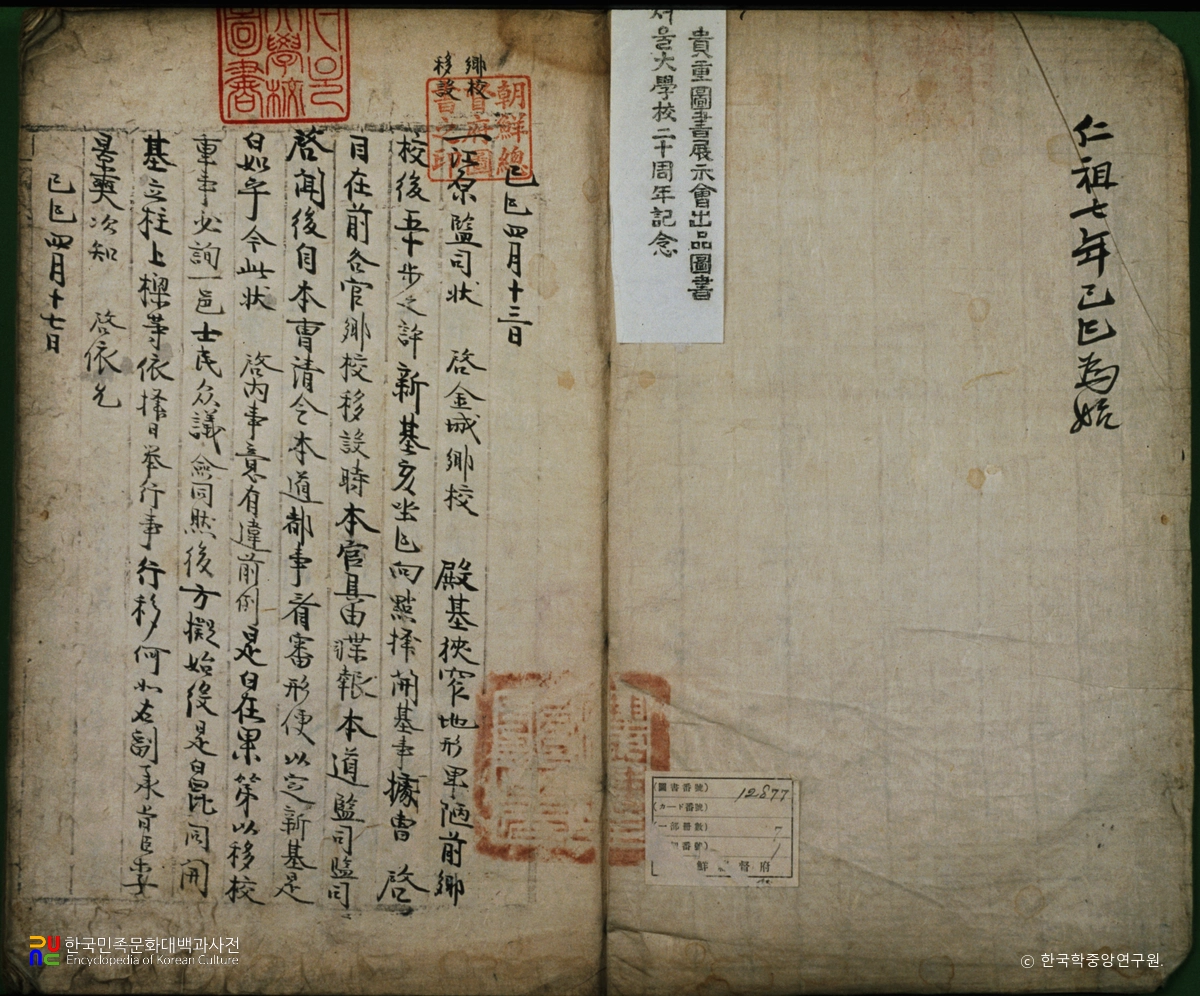 仁祖七年己巳為始
貴重圖書展示會出品圖書
서울大學校二十周年記念
(圖書番號) 12877
(カード番號)
(一部冊數) 7
番號) 1
鮮 督府
朝鮮總
督府圖
書之印
鄉校
移設
己巳四月十三日
一江原監司狀 啓金城鄉校 殿基挾窄地形卑陋前鄉
校後五十步之許新基亥坐巳向點擇開基事據曹 啓
目在前各官鄉校移設時本官具由牒報本道監司監司
啓聞後自本曹請令本道都事看審形便以定新基是
白如乎今此狀 啓內事意有違前例是白在果第以移校
重事必詢一邑士民众議僉同然後方擬始役是白昆同開
基立柱上樑等依擇日舉行事行移何如右副承旨臣李
景奭次知 啓依允
己巳四月十七日
한국민족문화대백과사전
Encyclopedia of Korean Culture
ⓒ 한국학중앙연구원.